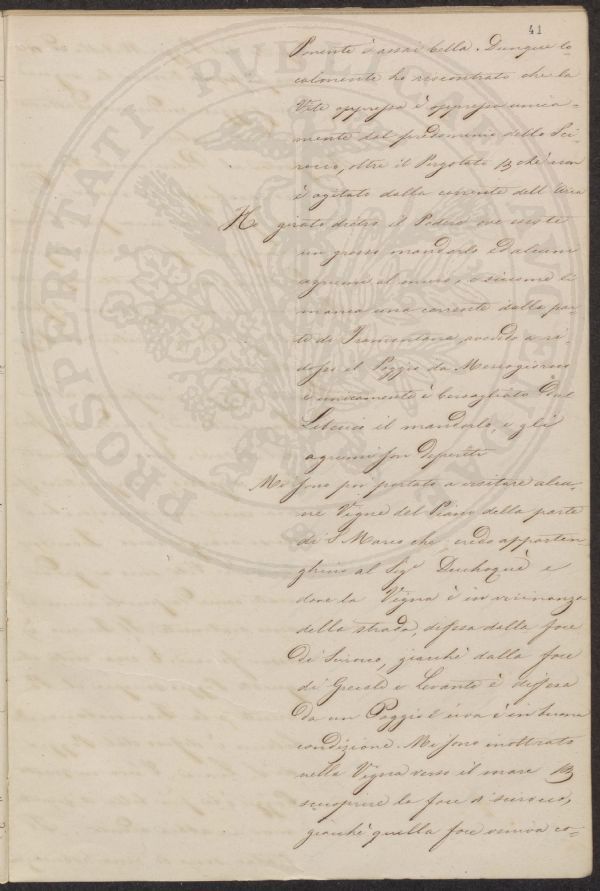 41
Ponente è assai bella. Dunque lo-
calmente ho riscontrato che la
Vite oppressa è oppressa unica-
mente dal predominio dello Sci-
rocco, oltre il Pergolato che non
è agitato dalla corrente dell'Aria
Ho girato dietro il Podere ove esiste
un grosso mandorlo ed alcuni
agrumi al muro, e siccome li
manca una corrente dalla par-
te di Tramontana, avendo a ri-
dosso il Poggio da Mezzogiorno
e unicamente è bersagliato dal
Libeccio il mandorlo, e gli
agrumi son deperiti
Mi sono poi portato a visitare alcu-
ne Vigne del Piano della parte
di S. Marco che credo apparten-
ghino al Sigr Duchoquè e
dove la Vigna è in vicinanza
della strada, difesa dalla foce
di Scirocco, giacchè dalla foce
di Grecale e Levante è difesa
da un Poggio l'uva è in buona
condizione. Mi sono inoltrato
nella Vigna verso il mare
scuoprire la foce di scirocco,
giacchè quella foce veniva co-
PROSPERITATI PUBLICAE AUGENDAE